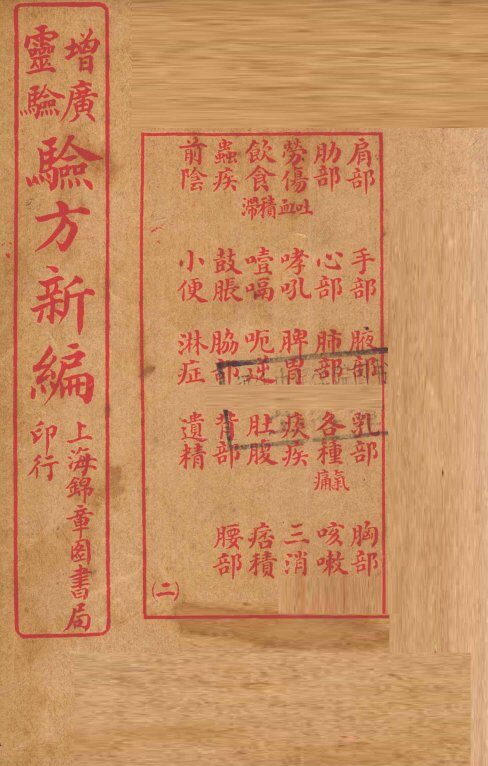 肩部 手部 腋部 乳部 胸部
肋部 心部 肺部 各種氣痛 咳嗽
勞傷吐血 哮吼 脾胃 痰疾 三消
飲食積滯 噎嗝 呃逆 肚腹 痞積
蟲疾 鼓脹 脇部 背部 腰部
前陰 小便 淋症 遺精
(二)
增廣
靈驗
驗方新編
上海錦章圖書局
印行